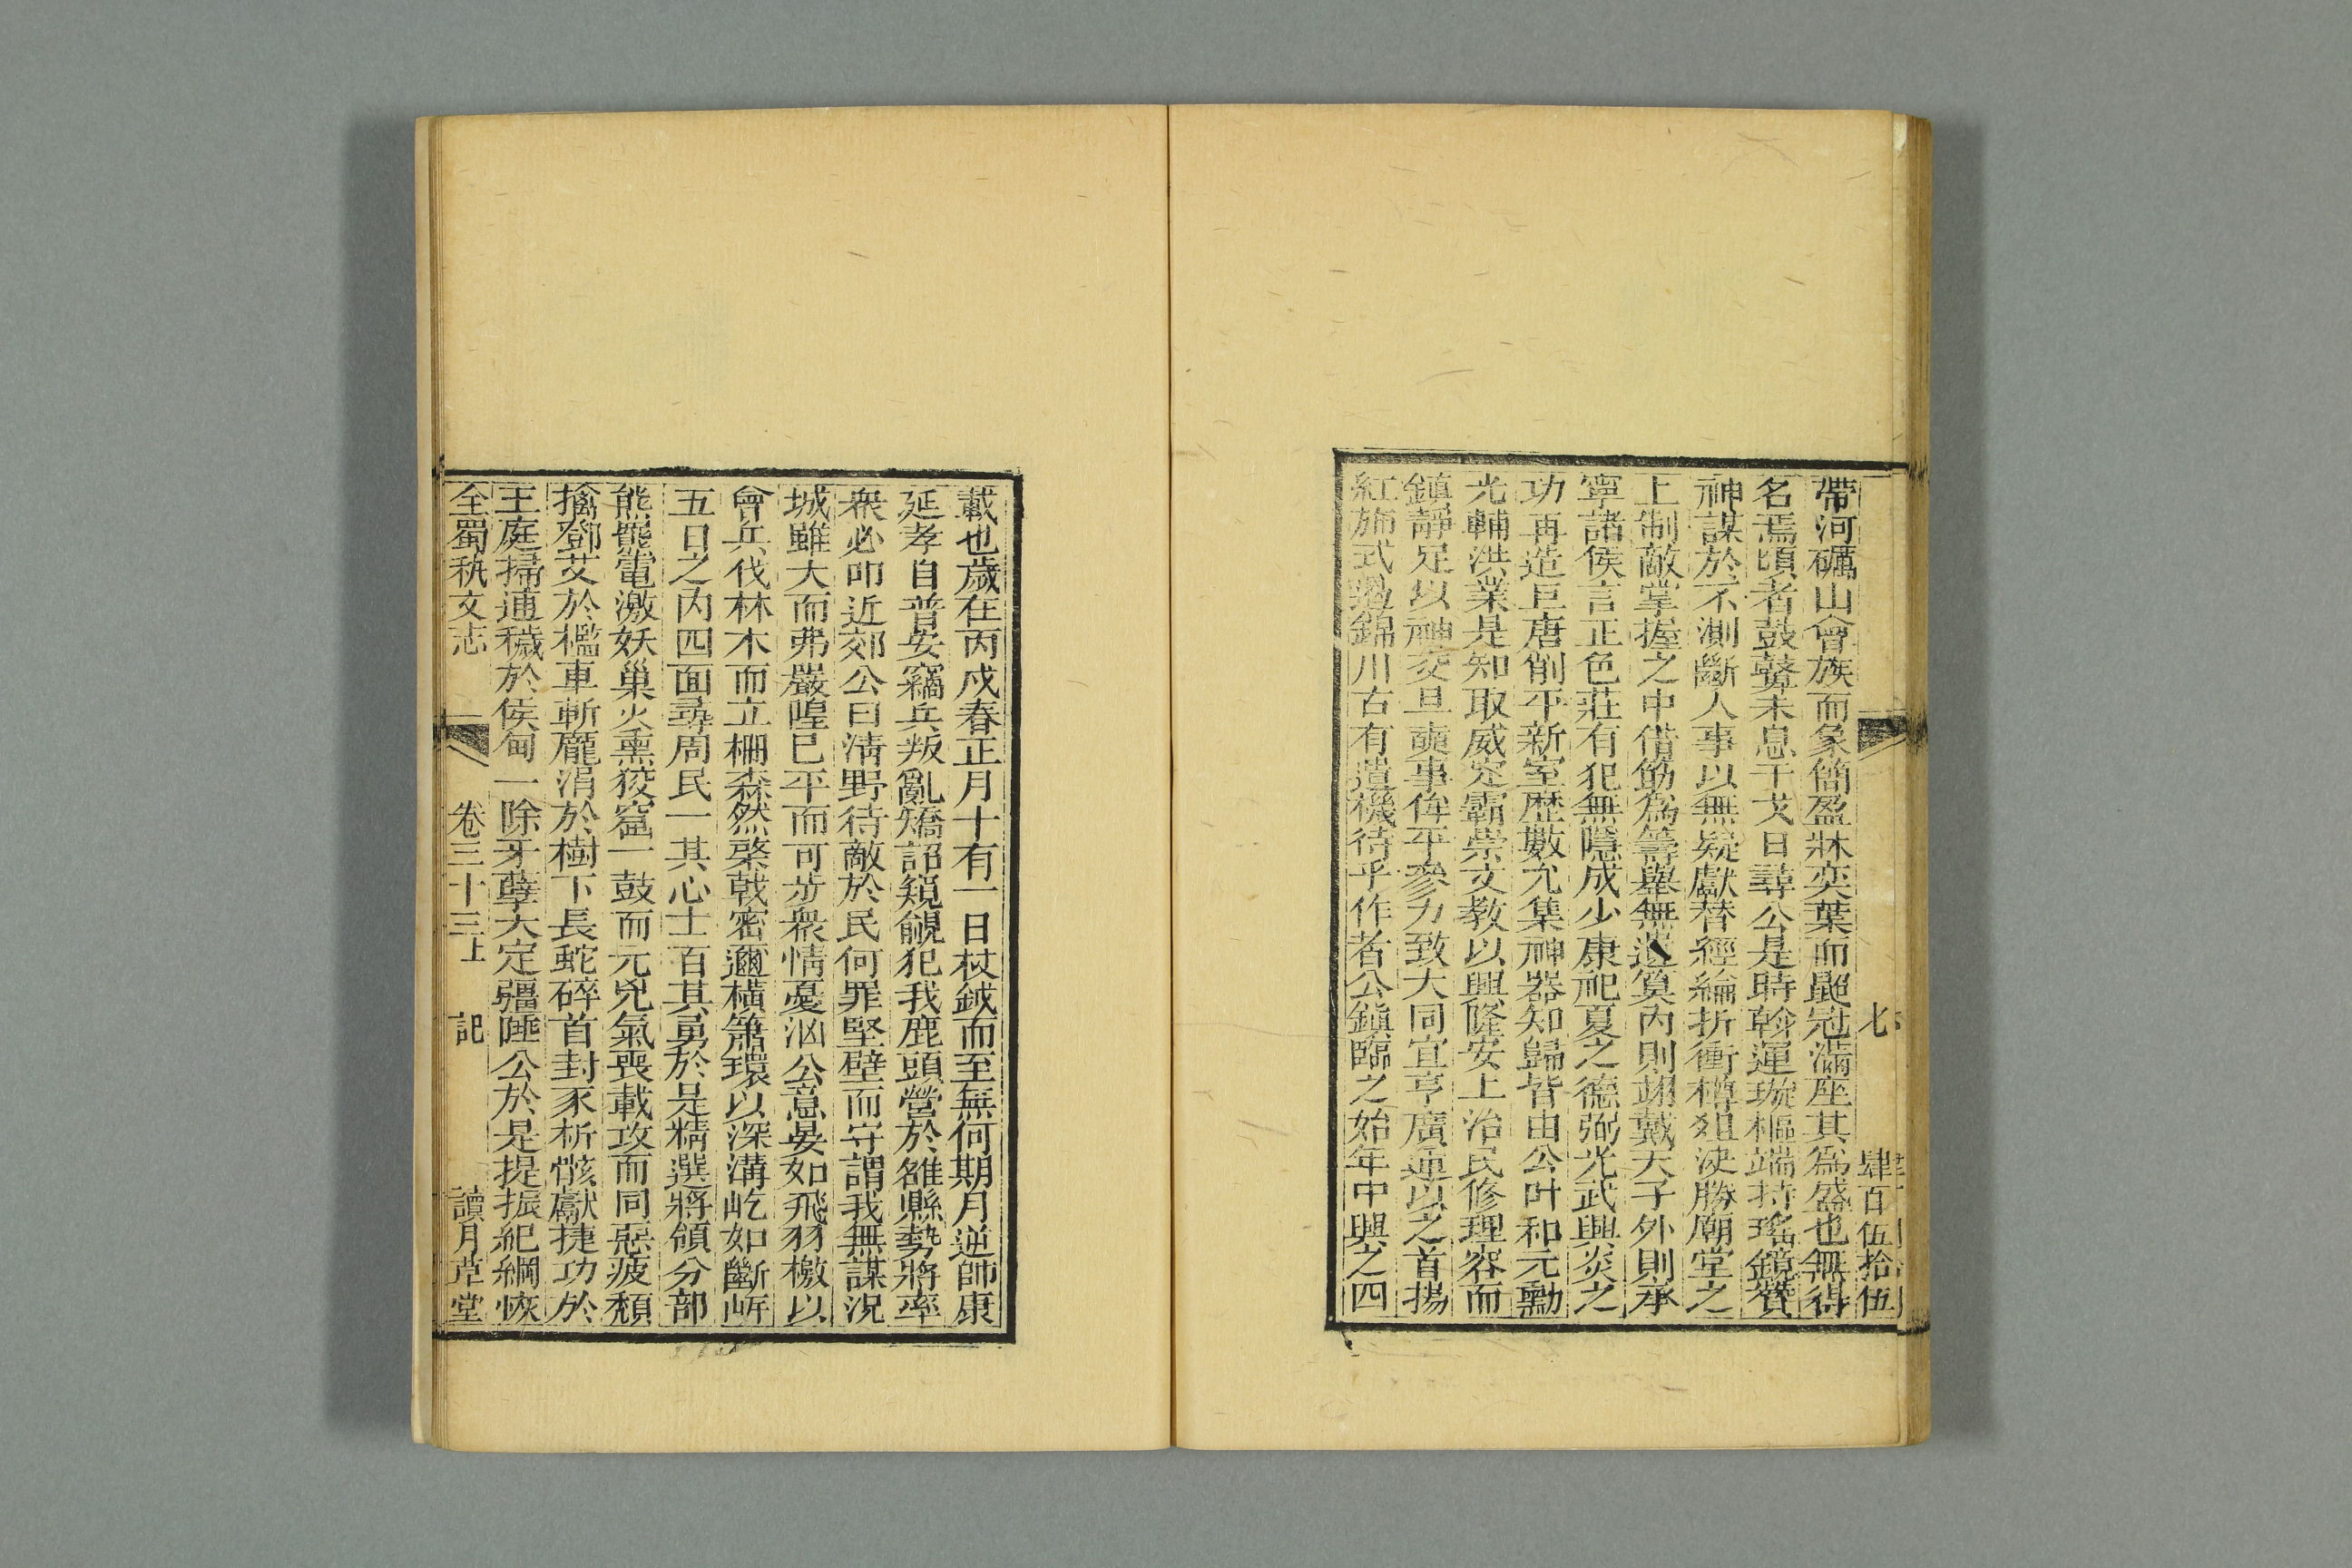 七 肆百伍拾伍
帶河礪山會族而象簡盈牀奕葉而貂冠滿座其為盛也無得
名焉頃者鼓鼙未息干戈日尋公是時斡運璇樞端持瑤鏡贊
神謀於不測斷人事以無疑獻替經綸折衝樽俎決勝廟堂之
上制敵掌握之中借筯為籌舉無遺筭內則翊戴天子外則承
寧諸侯言正色莊有犯無隱成少康祀夏之德弼光武興炎之
功再造巨唐削平新室歷數允集神器知歸皆由公叶和元勳
光輔洪業是知取威定霸崇文教以興隆安上治民修理容而
鎮靜足以神交旦奭事侔平參力致大同宜亨廣運以之首揚
紅斾式遏錦川古有遺機待乎作者公鎮臨之始年中興之四
載也歲在丙戌春正月十有一日杖鉞而至無何期月逆師康
延孝自普安竊兵叛亂矯詔窺覦犯我鹿頭營於雒縣勢將率
衆必叩近郊公曰清野待敵於民何罪堅壁而守謂我無謀況
城雖大而弗嚴隍已平而可步衆情憂汹公意晏如飛羽檄以
會兵伐林木而立柵森然棨戟密邇橫簫環以深溝屹如斷岸
五日之內四面尋周民一其心士百其勇於是精選將領分部
熊羆電激妖巢火熏狡窟一鼓而元兇氣喪載攻而同惡疲頽
擒鄧艾於檻車斬龐涓於樹下長蛇碎首封豕析骸獻捷功於
王庭掃逋穢於侯甸一除牙孽大定疆陲公於是提振紀綱恢
全蜀秇文志 卷三十三上 記 讀月草堂